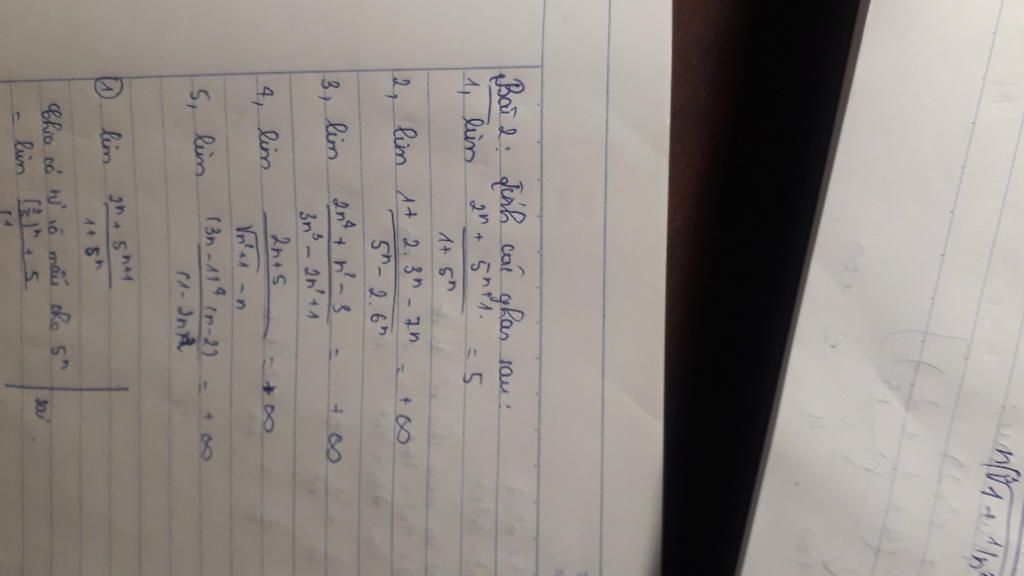 Bài 2: Tính các ghan sau:
1, lim (2ⁿ + 5ⁿ⁺¹)/(1 + 5ⁿ) = 5
2, lim (1 + 2.3ⁿ - 7ⁿ)/(5ⁿ - 2.6ⁿ) = +∞
3, lim (2n⁴ + n² - 3)/(3n³ - 2n² + 1) = +∞
4, lim (2n+5)/(√(n²+1) - n) = +∞
5, lim (3n-1)⁴(n-2)/(1-2n) = +∞
① lim (2ⁿ + 5ⁿ⁺¹)/(1 + 5ⁿ)
Chia cả tử và mẫu cho 5ⁿ
= lim ((2/5)ⁿ + 5)
n(√1 + 1/n²